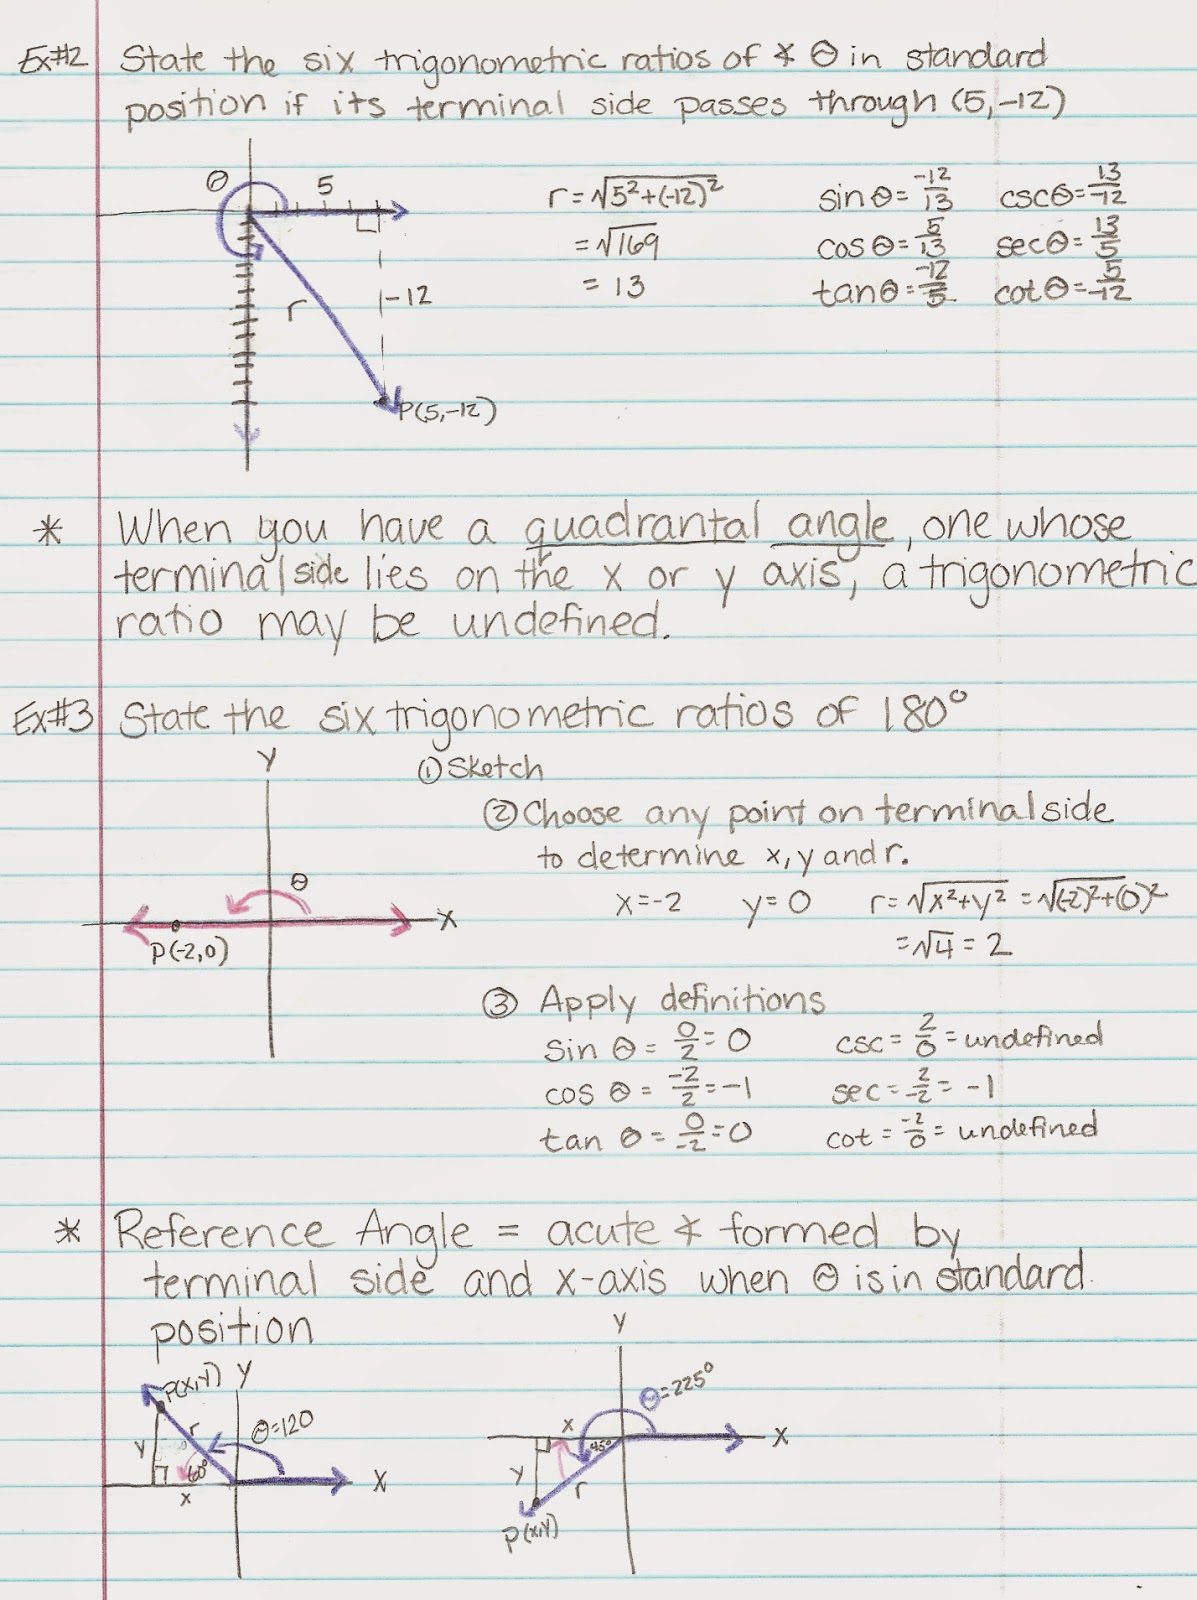 Ex#2 State the six trigonometric ratios of ∡ θ in standard
position if its terminal side passes through (5,-12)
θ 5
r = √5²+(-12)² sin θ = -12/13 csc θ = 13/-12
= √169 cos θ = 5/13 sec θ = 13/5
= 13 tan θ = -12/5 cot θ = 5/-12
r -12
P(5,-12)
* When you have a quadrantal angle, one whose
terminal side lies on the x or y axis, a trigonometric
ratio may be undefined.
Ex#3 State the six trigonometric ratios of 180°
y
① Sketch
② Choose any point on terminal side
to determine x, y and r.
θ
x=-2 y=0 r=√x²+y² =√(-2)²+(0)²
x
P(-2,0)
=√4 = 2
③ Apply definitions
sin θ = 0/2 = 0 csc = 2/0 = undefined
cos θ = -2/2 = -1 sec = 2/-2 = -1
tan θ = 0/-2 = 0 cot = -2/0 = undefined
* Reference Angle = acute ∡ formed by
terminal side and x-axis when θ is in standard
position
P(x,y) y
y r θ=120
60° x
x
y
θ=225°
x 45° x
y r
P(x,y)